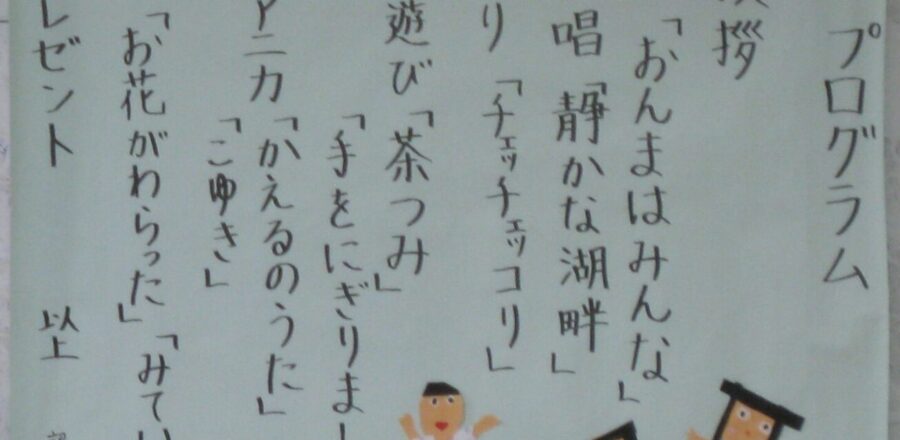 プログラム
挨拶
「おんまはみんな」
唱「静かな湖畔」
り「チェッチェッコリ」
遊び「茶つみ」
「手をにぎりま
ニカ「かえるのうた」
「こゆき」
「お花がわらった」「みてい
レゼント 以上